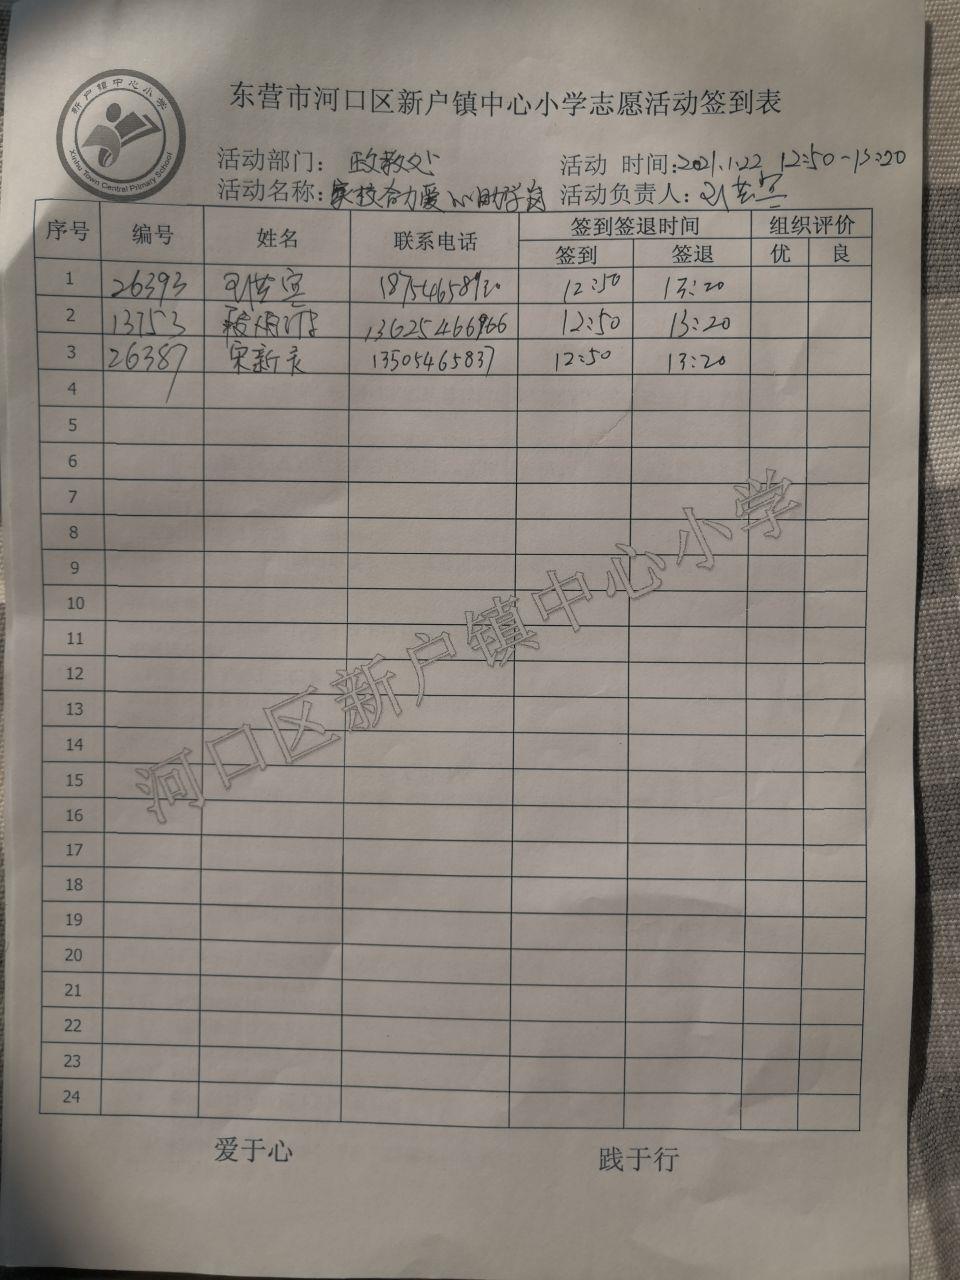 新户镇中心小学
Xinhu Town Central Primary School
东营市河口区新户镇中心小学志愿活动签到表
活动部门: 政教处
活动 时间:2021.1.22 12:50-13:20
活动名称: 家校合力爱心助学岗
活动负责人:
序号 编号 姓名 联系电话 签到签退时间 组织评价
签到 签退 优 良
1 26393 12:50 13:20
2 13753 13625466966 12:50 13:20
3 26387 宋新 13505465837 12:50 13:20
4
5
6
7
8
9
10
11
12
13
14
15
16
17
18
19
20
21
22
23
24
河口区新户镇中心小学
爱于心 践于行